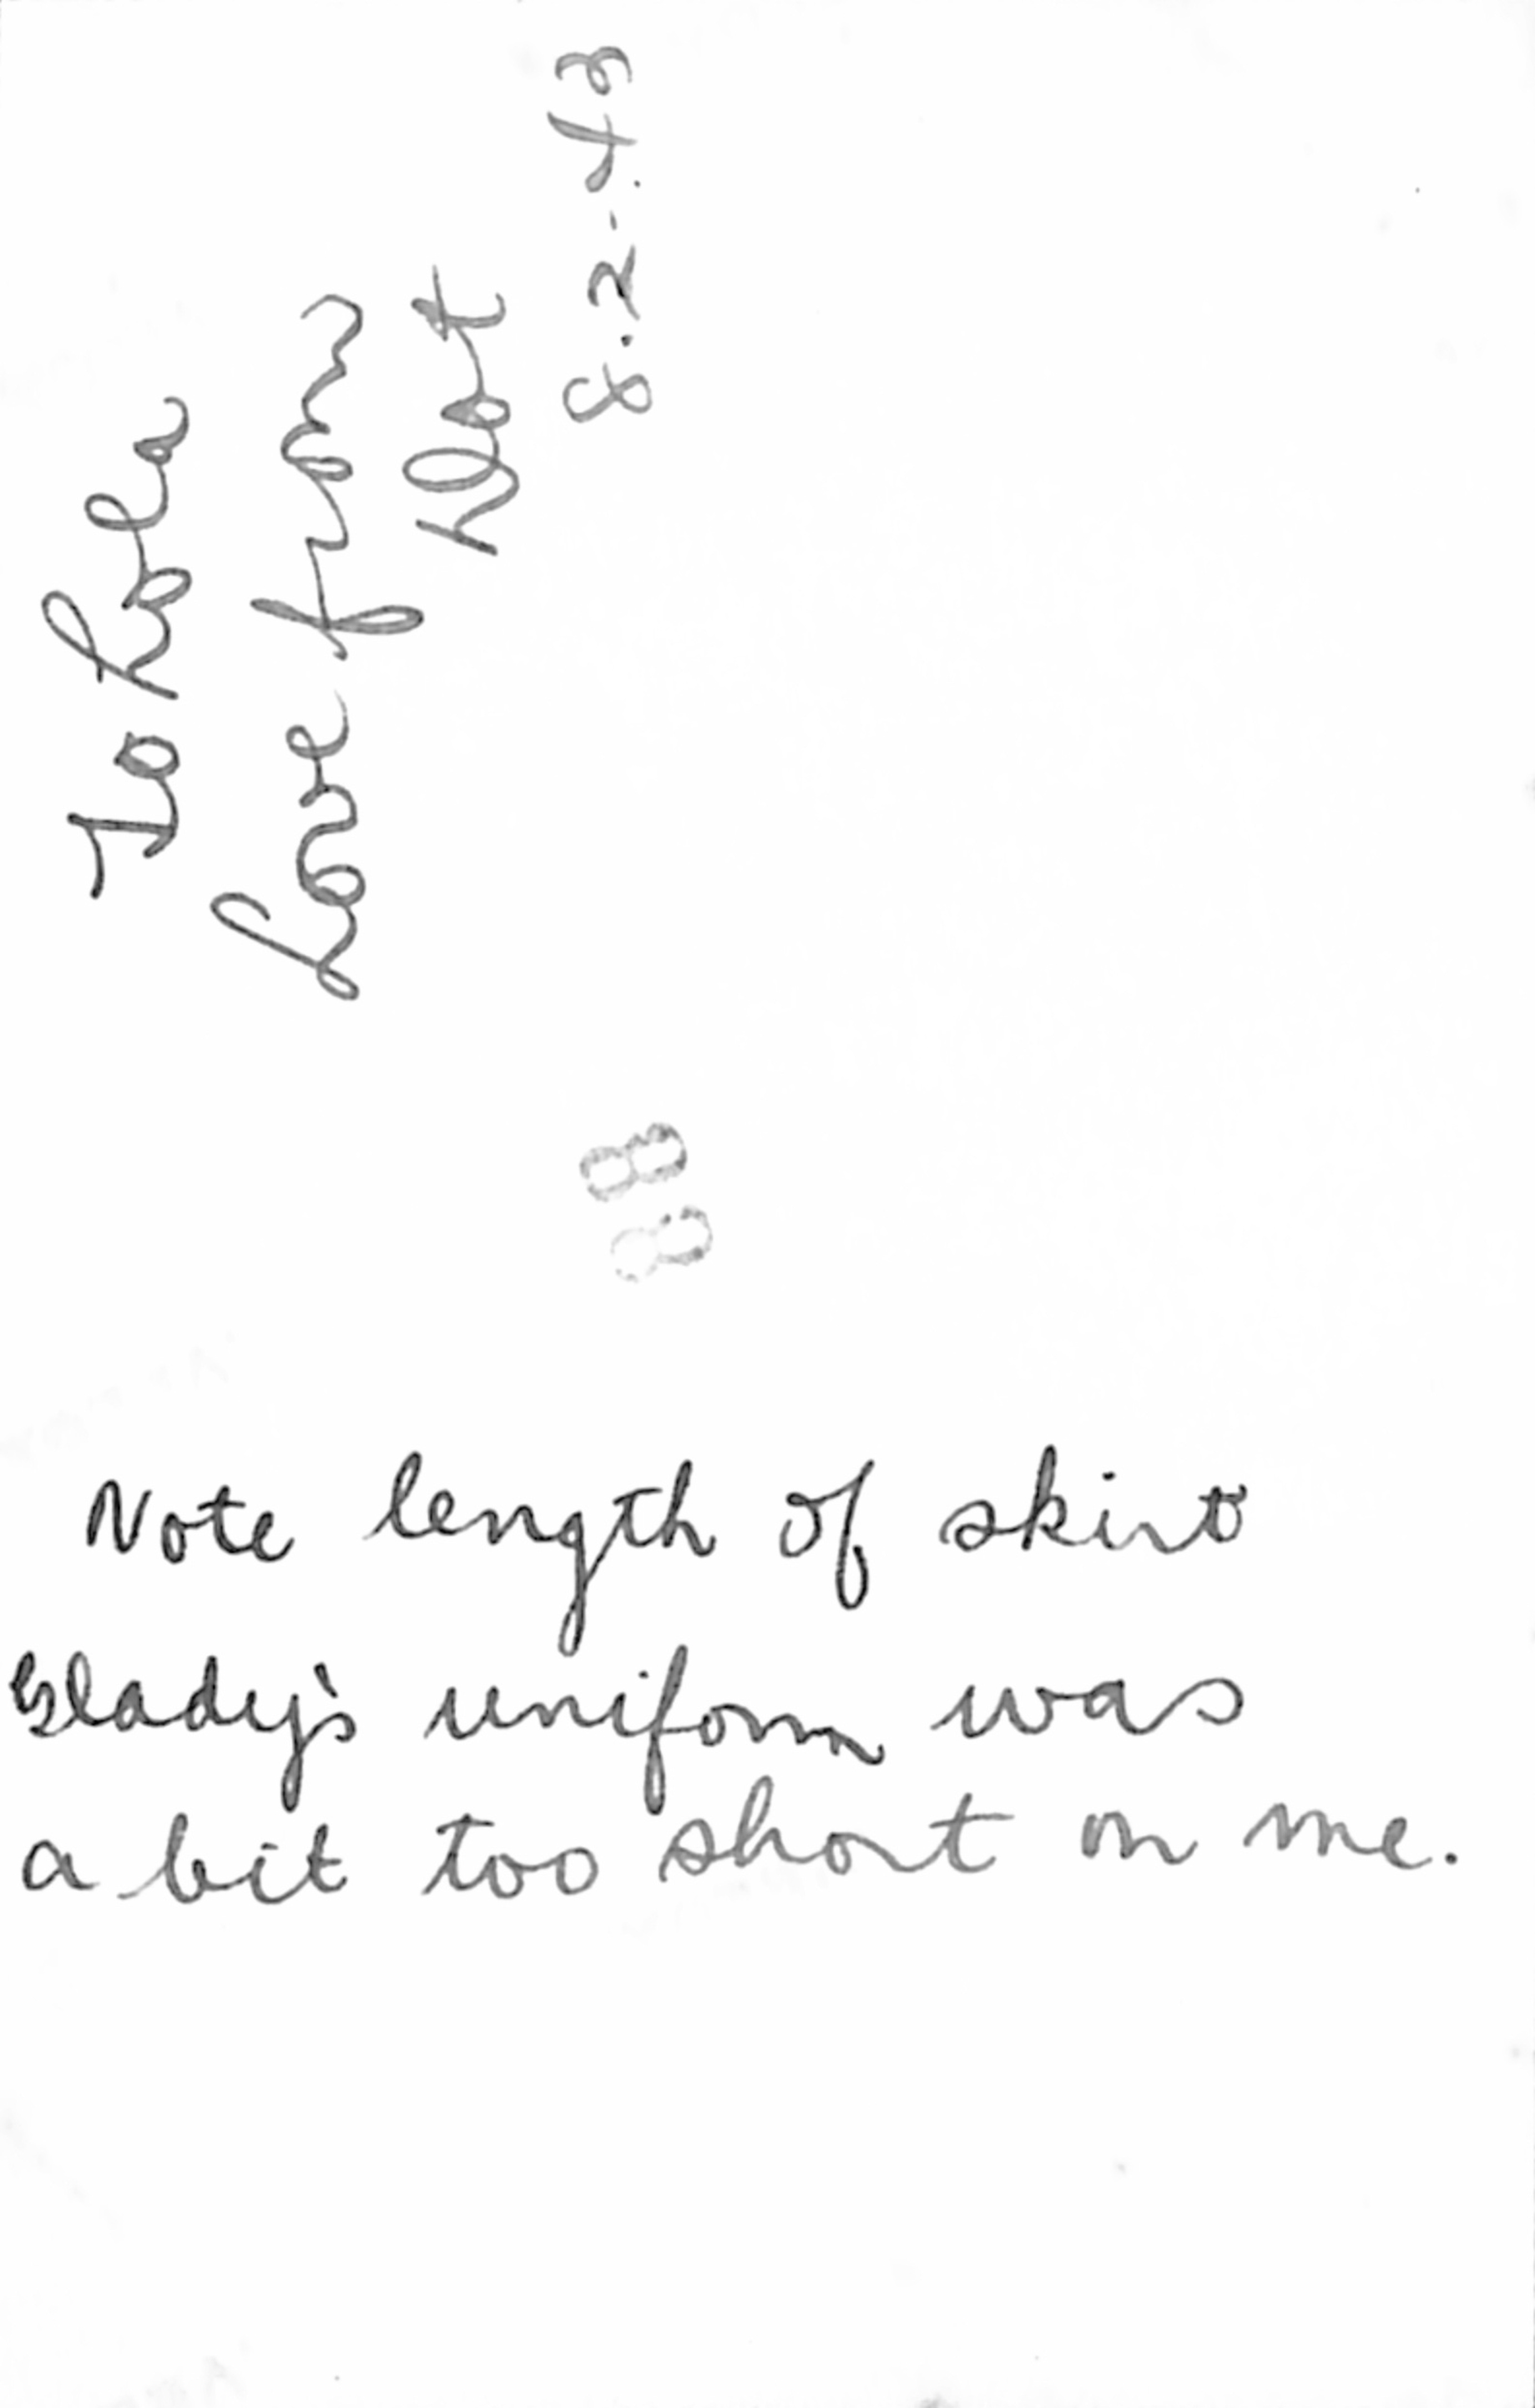 To Lola
Love from
Dot
8.2-.43
88
Note length of skirt
Glady's uniform was
a bit too short on me.